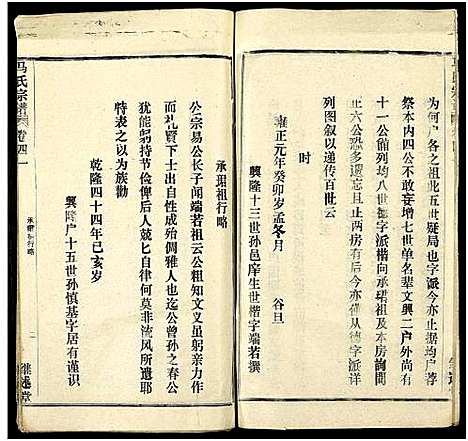 为何户各之祖此五世疑局也字派今亦与户荐
祭本内四公不敢妄增七世单名辈文興二户外尚有
十一公循列均八世德字派楷向承碏祖及本房詢問
六公恐多遗忘且止两房有后今亦僅从德字派详
列图叙以递传百世云
時
雍正元年癸卯岁孟冬月 谷旦
興隆十三世孙邑庠生世楷字端若撰
马氏宗譜 卷四一
承瑂祖行略
承瑂祖行略
公宗易公长子闻端若祖云公粗知文义虽躬亲力作
而礼賢下士出自性成殆倜雅人也迄公曾孙之春公
犹能躬持节俭俾后人兢匕自律何莫非流风所遗耶
特表之以为族勸
乾隆四十四年己亥岁
興隆户十五世孙慎基字居有谨识
二
继述堂